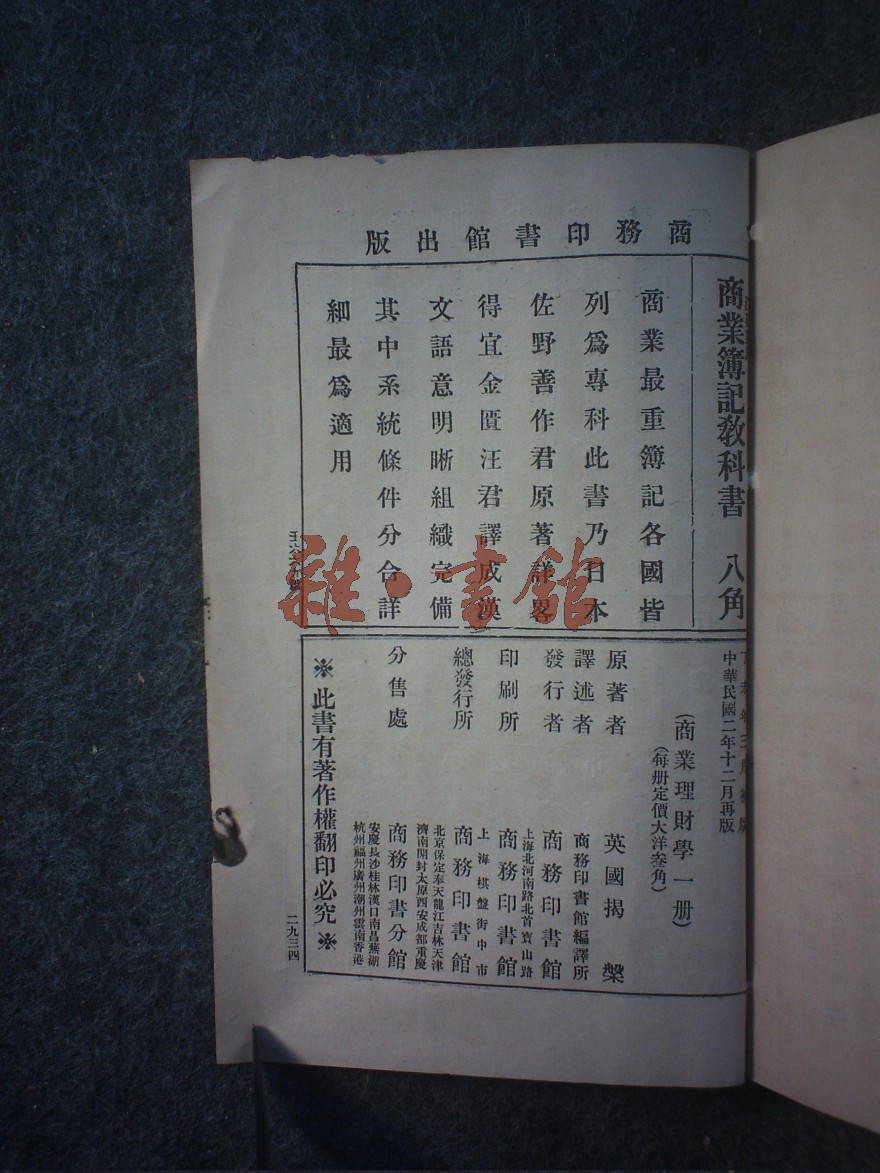 商務印書館出版
商業簿記教科書 八角
商業最重簿記各國皆
列爲專科此書乃日本
佐野善作君原著詳畧
得宜金匱汪君譯成漢
文語意明晰組織完備
其中系統條件分合詳
細最爲適用
中華民國二年十二月再版
(商業理財學一册)
(每册定價大洋叁角)
原著者 英國揭槃
譯述者 商務印書館編譯所
發行者 商務印書館
上海北河南路北首寶山路
印刷所 商務印書館
上海棋盤街中市
總發行所 商務印書館
北京保定奉天龍江吉林天津
濟南開封太原西安成都重慶
分售處 商務印書分館
安慶長沙桂林漢口南昌蕪湖
杭州福州廣州潮州雲南香港
※此書有著作權翻印必究※
二九三四
雜·書館